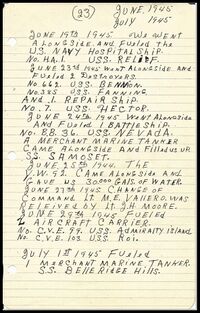 (23) JUNE 1945
JULY 1945
JUNE 19TH 1945 WE WENT
ALONGSIDE AND FUELED THE
U.S. NAVY HOSPITAL SHIP.
No. HA.1. USS. RELIEF.
JUNE 23TH 1945 WENT ALONGSIDE AND
FUELED 2 DESTROYERS.
No. 662. USS. BENNION.
No. 385 USS. FANNING.
AND 1 REPAIR SHIP.
No. 7. USS. HECTOR.
JUNE 24TH 1945 WENT ALONGSIDE
AND FUELED 1 BATTLESHIP.
No. BB. 36. USS. NEVADA.
A MERCHANT MARINE TANKER
CAME ALONGSIDE AND FILLED US UP.
SS. SAMOSET.
JUNE 25TH 1944. THE
Y.W. 92. CAME ALONGSIDE AND
GAVE US 30000 GALS. OF WATER.
JUNE 27TH 1945 CHANGE OF
COMMAND LT. M.E. VALLERO. WAS
RELIEVED BY LT. J.H. MOORE.
JUNE 29TH 1945 FUELED
2 AIRCRAFT CARRIER.
No. C.V.E. 99. USS. ADMIRALTY ISLAND
No. C.V.E. 103 USS. ROI.
JULY 1st 1945 FUELED
1 MERCHANT MARINE TANKER.
S.S. BELLE RIDGE HILLS.